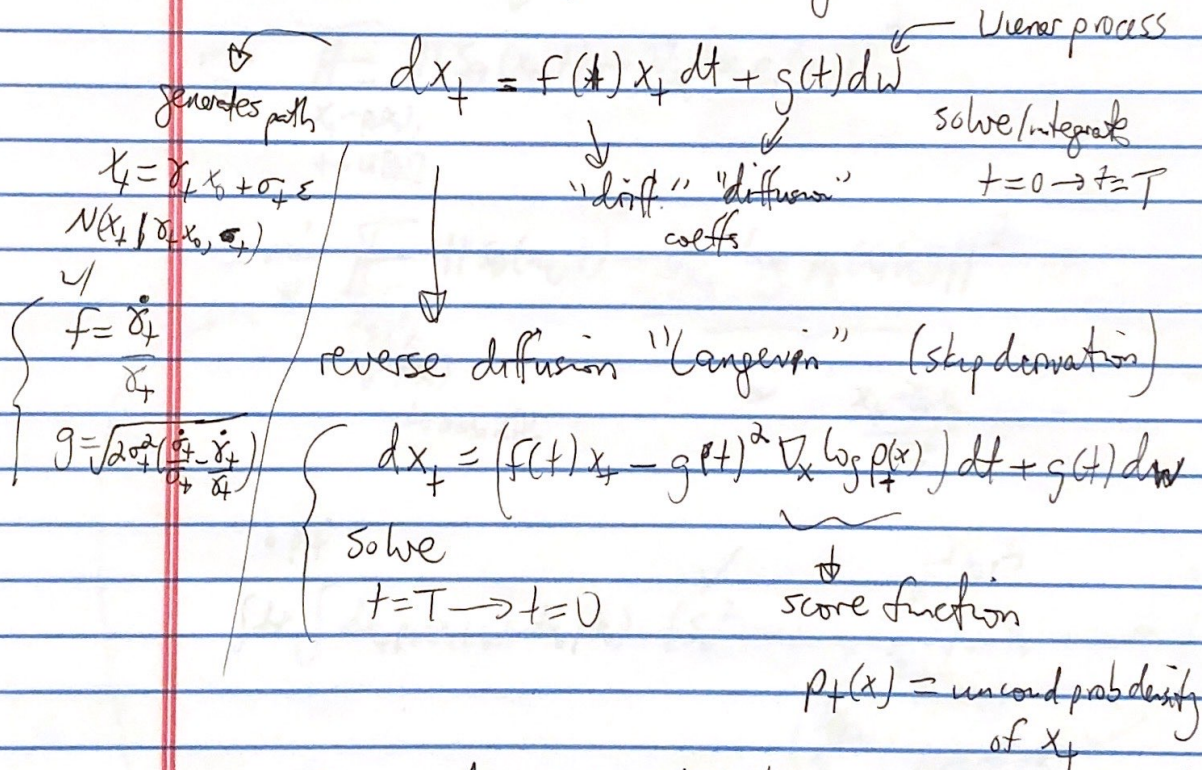 Wiener process
dx_t = f(t) x_t dt + g(t) dw
generates path
solve/integrate
t=0 → t=T
"drift" "diffusion"
coeffs
x_t = γ_t x_0 + σ_t ε
N(x_t | γ_t x_0, σ_t)
w/
f = γ̇_t / γ_t
g = √(2σ_t² (σ̇_t/σ_t - γ̇_t/γ_t))
reverse diffusion "Langevin" (skip derivation)
dx_t = (f(t) x_t - g(t)² ∇_x log p_t(x)) dt + g(t) dw
solve
t=T → t=0
score function
p_t(x) = uncond prob density
of x_t